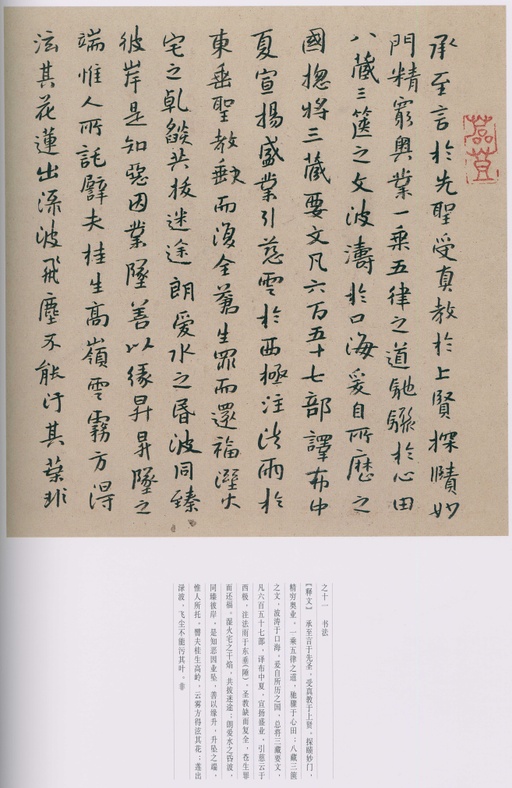 承至言於先聖受真教於上賢探賾妙
門精窮奧業一乘五律之道馳驟於心田
八藏三篋之文波濤於口海爰自所歷之
國揔將三藏要文凡六百五十七部譯布中
夏宣揚盛業引慈雲於西極注法雨於
東垂聖教缺而復全蒼生罪而還福濕火
宅之乾燄共拔迷途朗愛水之昏波同臻
彼岸是知惡因業墜善以緣昇昇墜之
端惟人所託譬夫桂生高嶺雲霧方得
泫其花蓮出淥波飛塵不能污其葉非
之十一 书法
【释文】 承至言于先圣，受真教于上贤，探赜妙门，
精穷奥业，一乘五律之道，驰骤于心田；八藏三箧
之文，波涛于口海，爰自所历之国，总将三藏要文，
凡六百五十七部，译布中夏，宣扬盛业，引慈云于
西极，注法雨于东垂(陲)，圣教缺而复全，苍生罪
而还福，湿火宅之干焰，共拔迷途；朗爱水之昏波，
同臻彼岸，是知恶因业坠，善以缘升，升坠之端，
惟人所托。譬夫桂生高岭，云雾方得泫其花；莲出
渌波，飞尘不能污其叶。非